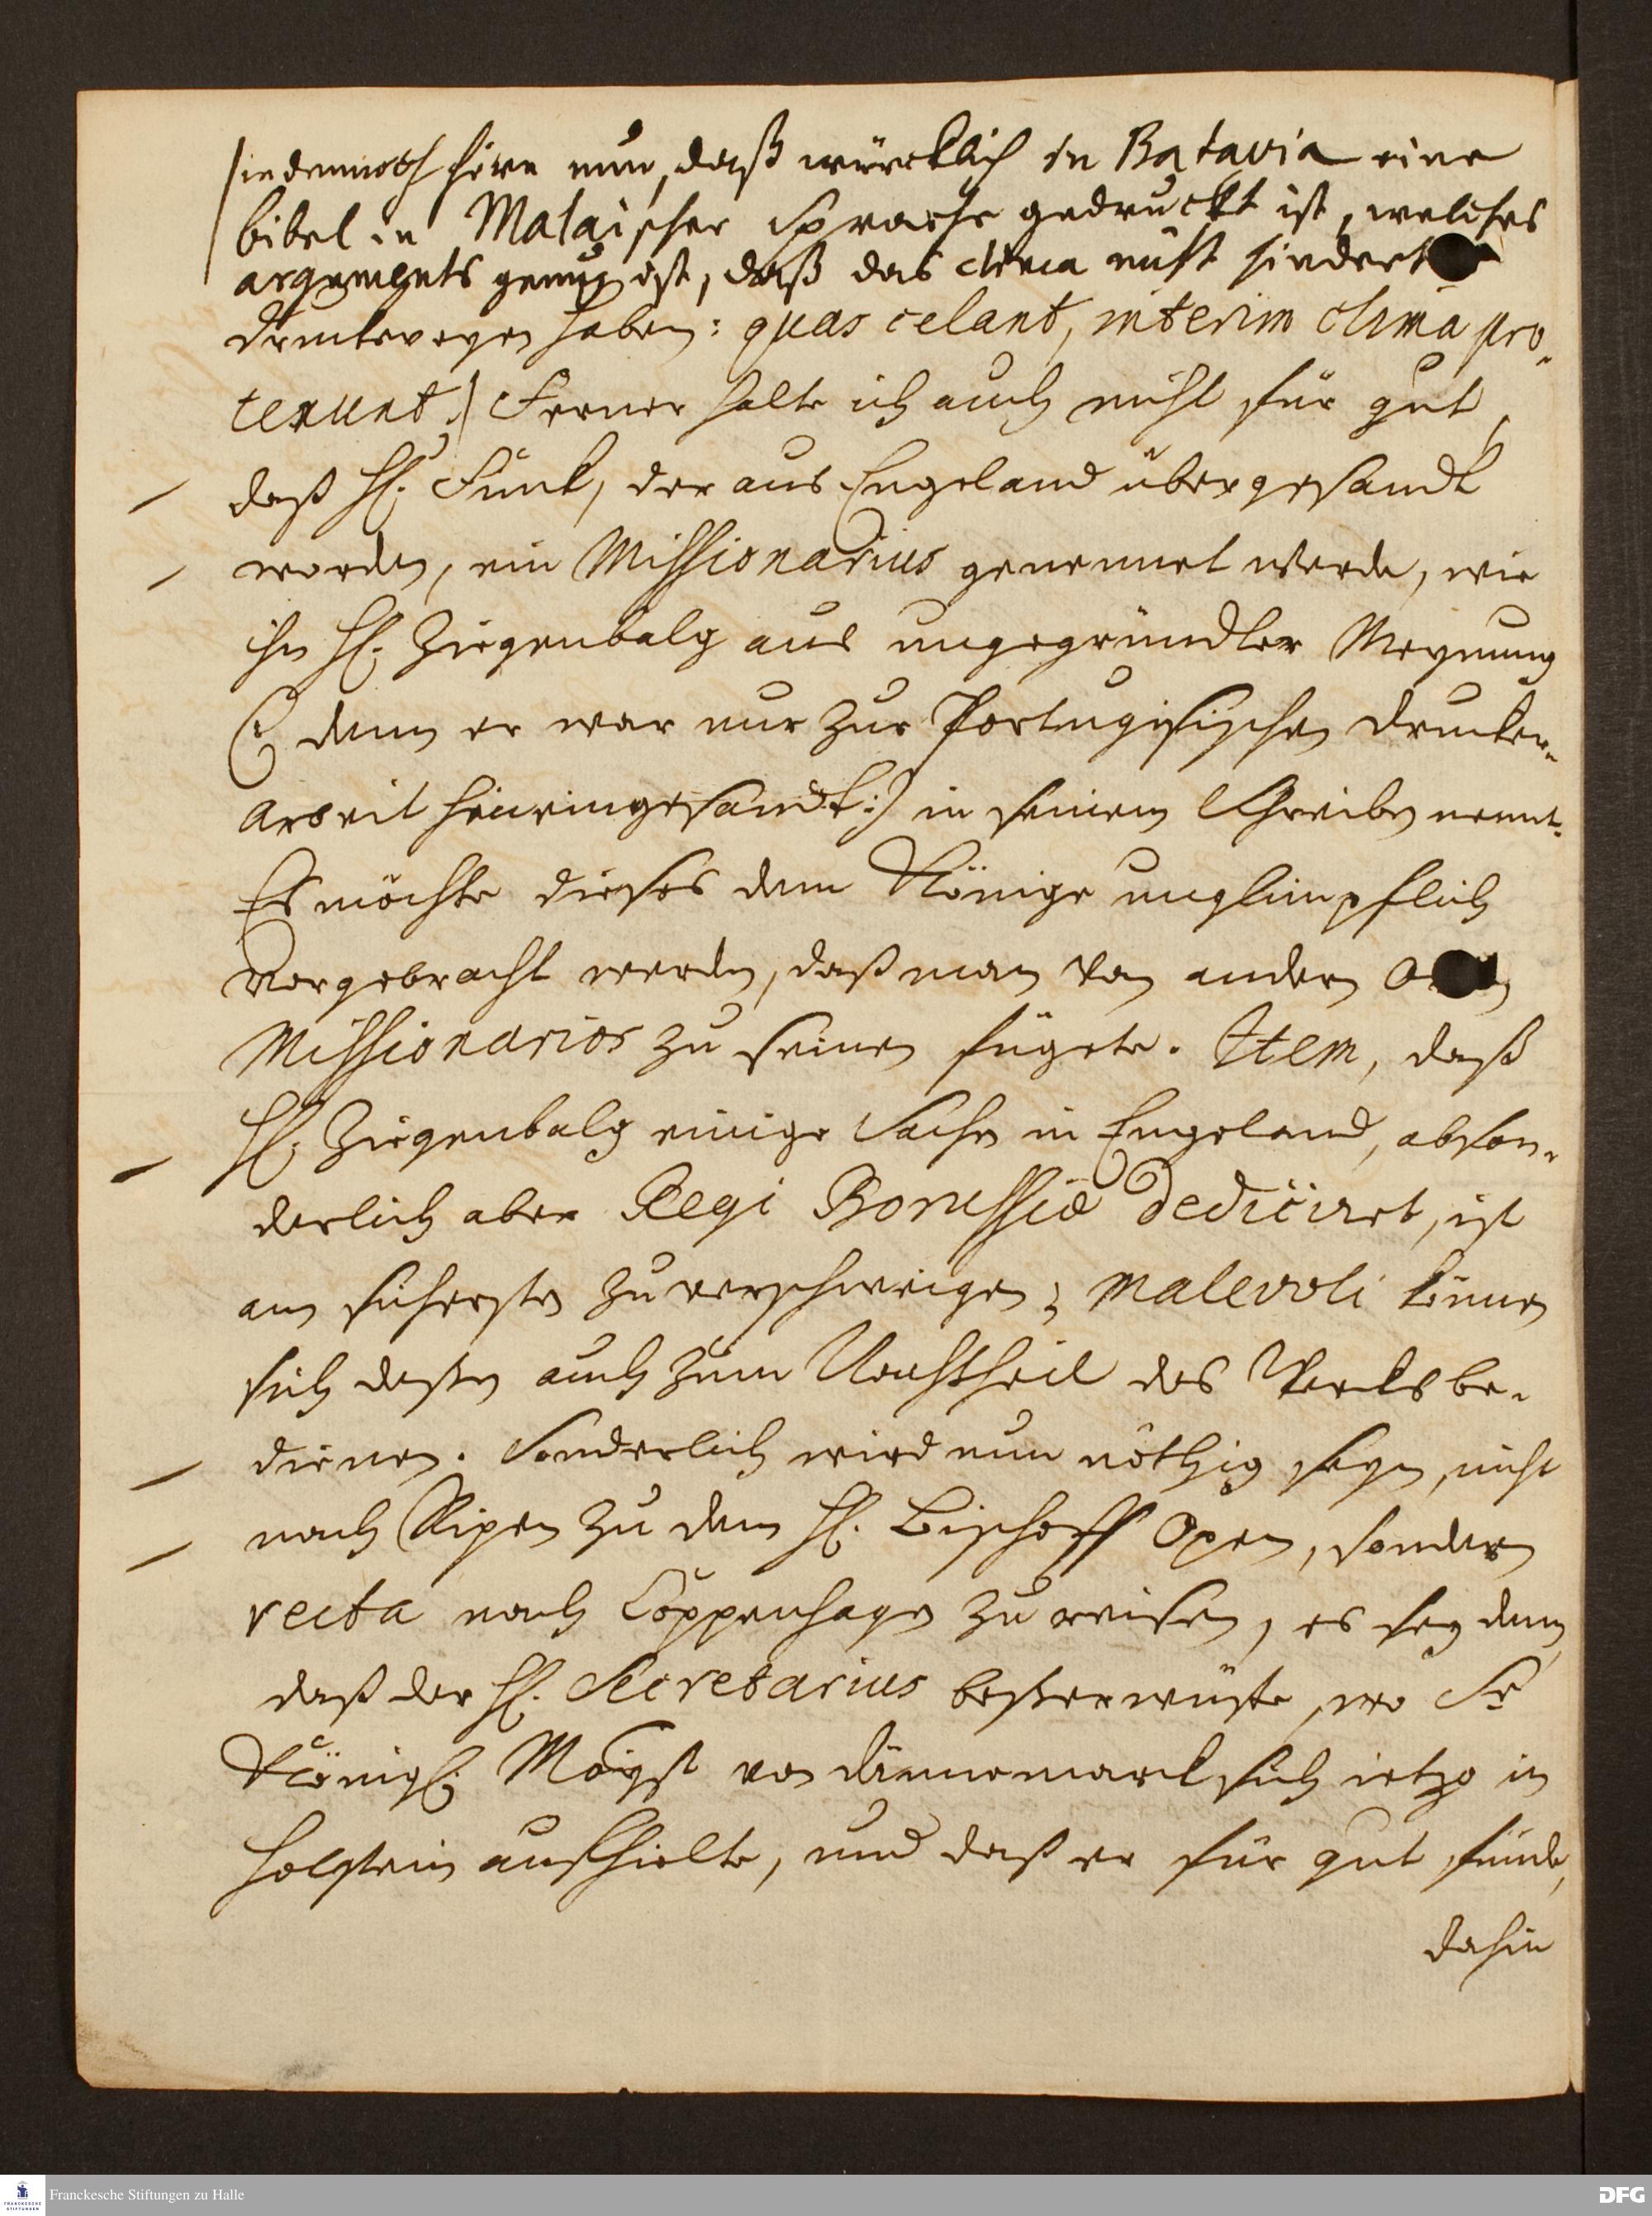 |indennoch höre nun, daß würcklich in Batavia eine
bibel in Malaischer Sprache gedruckt ist, welches
arguments genug ist, daß das clima nicht hindert
druckereyen haben: quas celant, interim clima pro-
texunt.| Ferner halte ich auch nicht für gut,
daß H. Funck, der aus Engeland übergesandt
worden, ein Missionarius genennet werde, wie
ihn H. Ziegenbalg aus ungegründter Meynung
(: denn er war nur zur Portugisischen Drucker-
Arbeit hineingesandt:) in seinem Schreiben nennt.
Es möchte dieses dem Könige unglimpflich
vorgebracht werden, daß man von andern
Missionarios zu seinen fügete. Item, daß
H. Ziegenbalg einige Sachen in Engeland, abson-
derlich aber Regi Borussiæ dediciret, ist
am sichersten zu verschweigen; malevoli können
sich deßen auch zum Nachtheil des Wercks be-
dienen. Sonderlich wird nun nöthig seyn, nicht
nach Ripen zu dem H. Bischoff Open, sondern
recta nach Coppenhagen zu reisen, es sey denn
daß der H. Secretarius beßer wüste, wo Sr
Königl. Mayst von dännemarck sich ietzo in
Holstein aufhielte, und daß er für gut fünde,
dahin
Franckesche Stiftungen zu Halle
DFG